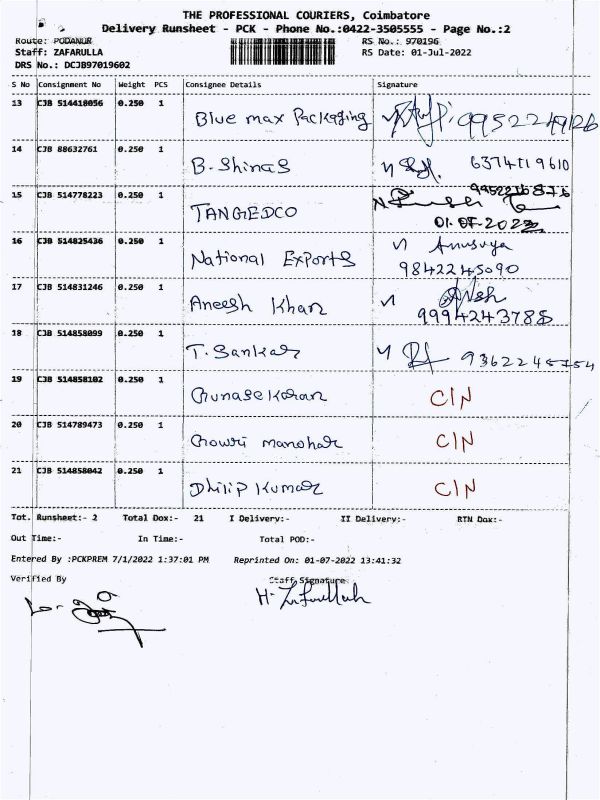 THE PROFESSIONAL COURIERS, Coimbatore
Delivery Runsheet - PCK - Phone No.:0422-3505555 - Page No.:2
Route: PODANUR RS No.: 970196
Staff: ZAFARULLA RS Date: 01-Jul-2022
DRS No.: DCJB97019602
S No Consignment No Weight PCS Consignee Details Signature
13 CJB 514418056 0.250 1 Blue max Packaging 9952249126
14 CJB 88632761 0.250 1 B. Shinas 6374119610
15 CJB 514778223 0.250 1 TANGEDCO 9952216876
01.07.2022
16 CJB 514825436 0.250 1 National Exports Anusuya
9842245090
17 CJB 514831246 0.250 1 Aneesh Khan
9994243788
18 CJB 514858099 0.250 1 T. Sankar 9362248754
19 CJB 514858102 0.250 1 Gunasekaran C/N
20 CJB 514789473 0.250 1 Gowri manohar C/N
21 CJB 514858042 0.250 1 Dhilip Kumar C/N
Tot. Runsheet:- 2 Total Dox:- 21 I Delivery:- II Delivery:- RTN Dox:-
Out Time:- In Time:- Total POD:-
Entered By :PCKPREM 7/1/2022 1:37:01 PM Reprinted On: 01-07-2022 13:41:32
Verified By Staff Signature
H. Zafarullah